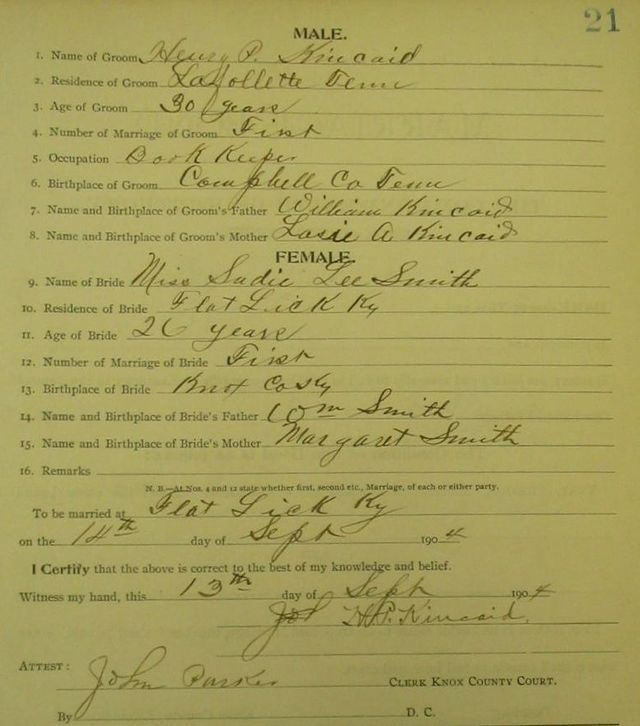 21
MALE.
1. Name of Groom Henry P. Kincaid
2. Residence of Groom LaFollette Tenn
3. Age of Groom 30 years
4. Number of Marriage of Groom First
5. Occupation Book Keeper
6. Birthplace of Groom Campbell Co Tenn
7. Name and Birthplace of Groom's Father William Kincaid
8. Name and Birthplace of Groom's Mother A Kincaid
FEMALE.
9. Name of Bride Miss Sadie Lee Smith
10. Residence of Bride Flat Lick Ky
11. Age of Bride 26 years
12. Number of Marriage of Bride First
13. Birthplace of Bride Knox Co Ky
14. Name and Birthplace of Bride's Father Wm Smith
15. Name and Birthplace of Bride's Mother Margaret Smith
16. Remarks
N. B.—At Nos. 4 and 12 state whether first, second etc., Marriage, of each or either party.
To be married at Flat Lick Ky
on the 14th day of Sept 1904
I Certify that the above is correct to the best of my knowledge and belief.
Witness my hand, this 13th day of Sept 1904
H.P. Kincaid.
ATTEST: John Parker CLERK KNOX COUNTY COURT.
By D. C.